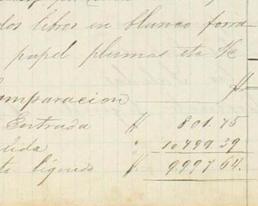 dos libros en blanco forra
papel plumas eta &c
omparacion
Entrada $ 801.75
lida " 10799.39
te líquido $ 9997.64.